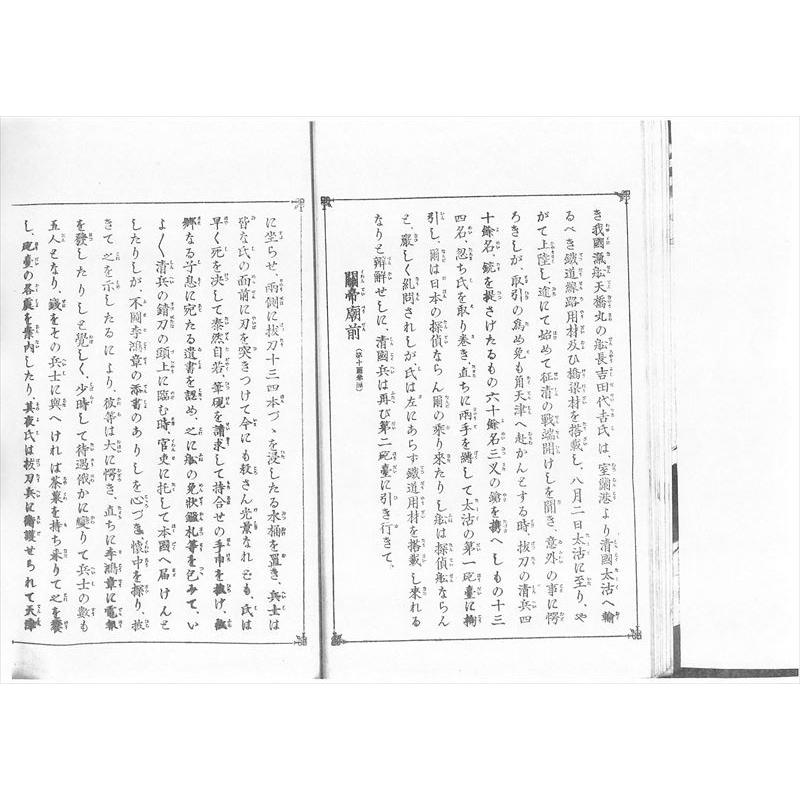 き我國滊舩天橋丸の舩長吉田代吉氏は、室蘭港より清國太沽へ輸
るべき鐵道線路用材及び橋梁材を搭載し、八月二日太沽に至り、や
がて上陸し、途にて始めて征清の戰端開けしを聞き、意外の事に愕
ろきしが、取引の爲め兎も角天津へ赴かんとする時、拔刀の清兵四
十餘名、銃を提さげたるもの六十餘名三叉の鎗を携へしもの十三
四名、忽ち氏を取り巻き、直ちに兩手を縛して太沽の第一砲臺に拘
引し、爾は日本の探偵ならん爾の乘り來たりし舩は探偵舩ならん
と、嚴しく糺問されしが氏は左にあらず鐵道用材を搭載し來れる
なりと辯解せしに、清國兵は再び第二砲臺に引き行きて、
關帝廟前
に坐らせ、兩側に拔刀十三四本づゝを浸したる水桶を置き、兵士は
皆な氏の面前に刃を突きつけて今にも殺さん光景なれども、氏は
早く死を決して泰然自若、筆硯を請求して持合せの手巾を
なる子息に宛たる遺書を認め、之に舩の免狀鑑札等を包みて、い
よ〱清兵の錆刀の頭上に臨む時、官吏に托して本國へ届けんと
したりしが、不圖李鴻章の添書のありしを心づき、懷中を探り、拔
きて之を示したるにより、彼等は大に愕き、直ちに李鴻章に電報
を發したりしと覺しく、少時して待遇俄かに變りて兵士の數も
五人となり、錢をその兵士に與へければ茶菓を持ち來りて之を饗
し、砲臺の各處を案内したり、其夜氏は拔刀兵に衞護せられて天津